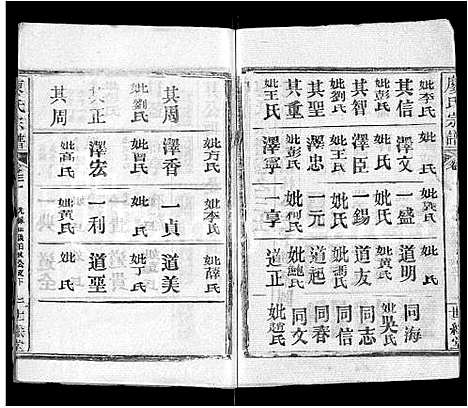 廖氏宗譜
其信 澤文 一盛 道明 同海
妣李氏 妣氏 妣龔氏 妣萬氏 妣吳氏
其智 澤臣 一錫 道友 同志
妣彭氏 妣氏 妣氏 妣馮氏
其聖 澤忠 一元 道起 同信
妣王氏 妣氏 妣氏
其重 澤寧 一享 道正 同春
妣彭氏 妣何氏 妣鮑氏
妣王氏 妣氏 同文
妣趙氏
世綵堂
其周 澤香 一貞 道美
妣方氏 妣李氏 妣薛氏
其正 澤宏 一利 道堊
妣劉氏 妣曾氏 妣丁氏
其周 妣高氏 妣黃氏 妣氏
廖氏宗譜